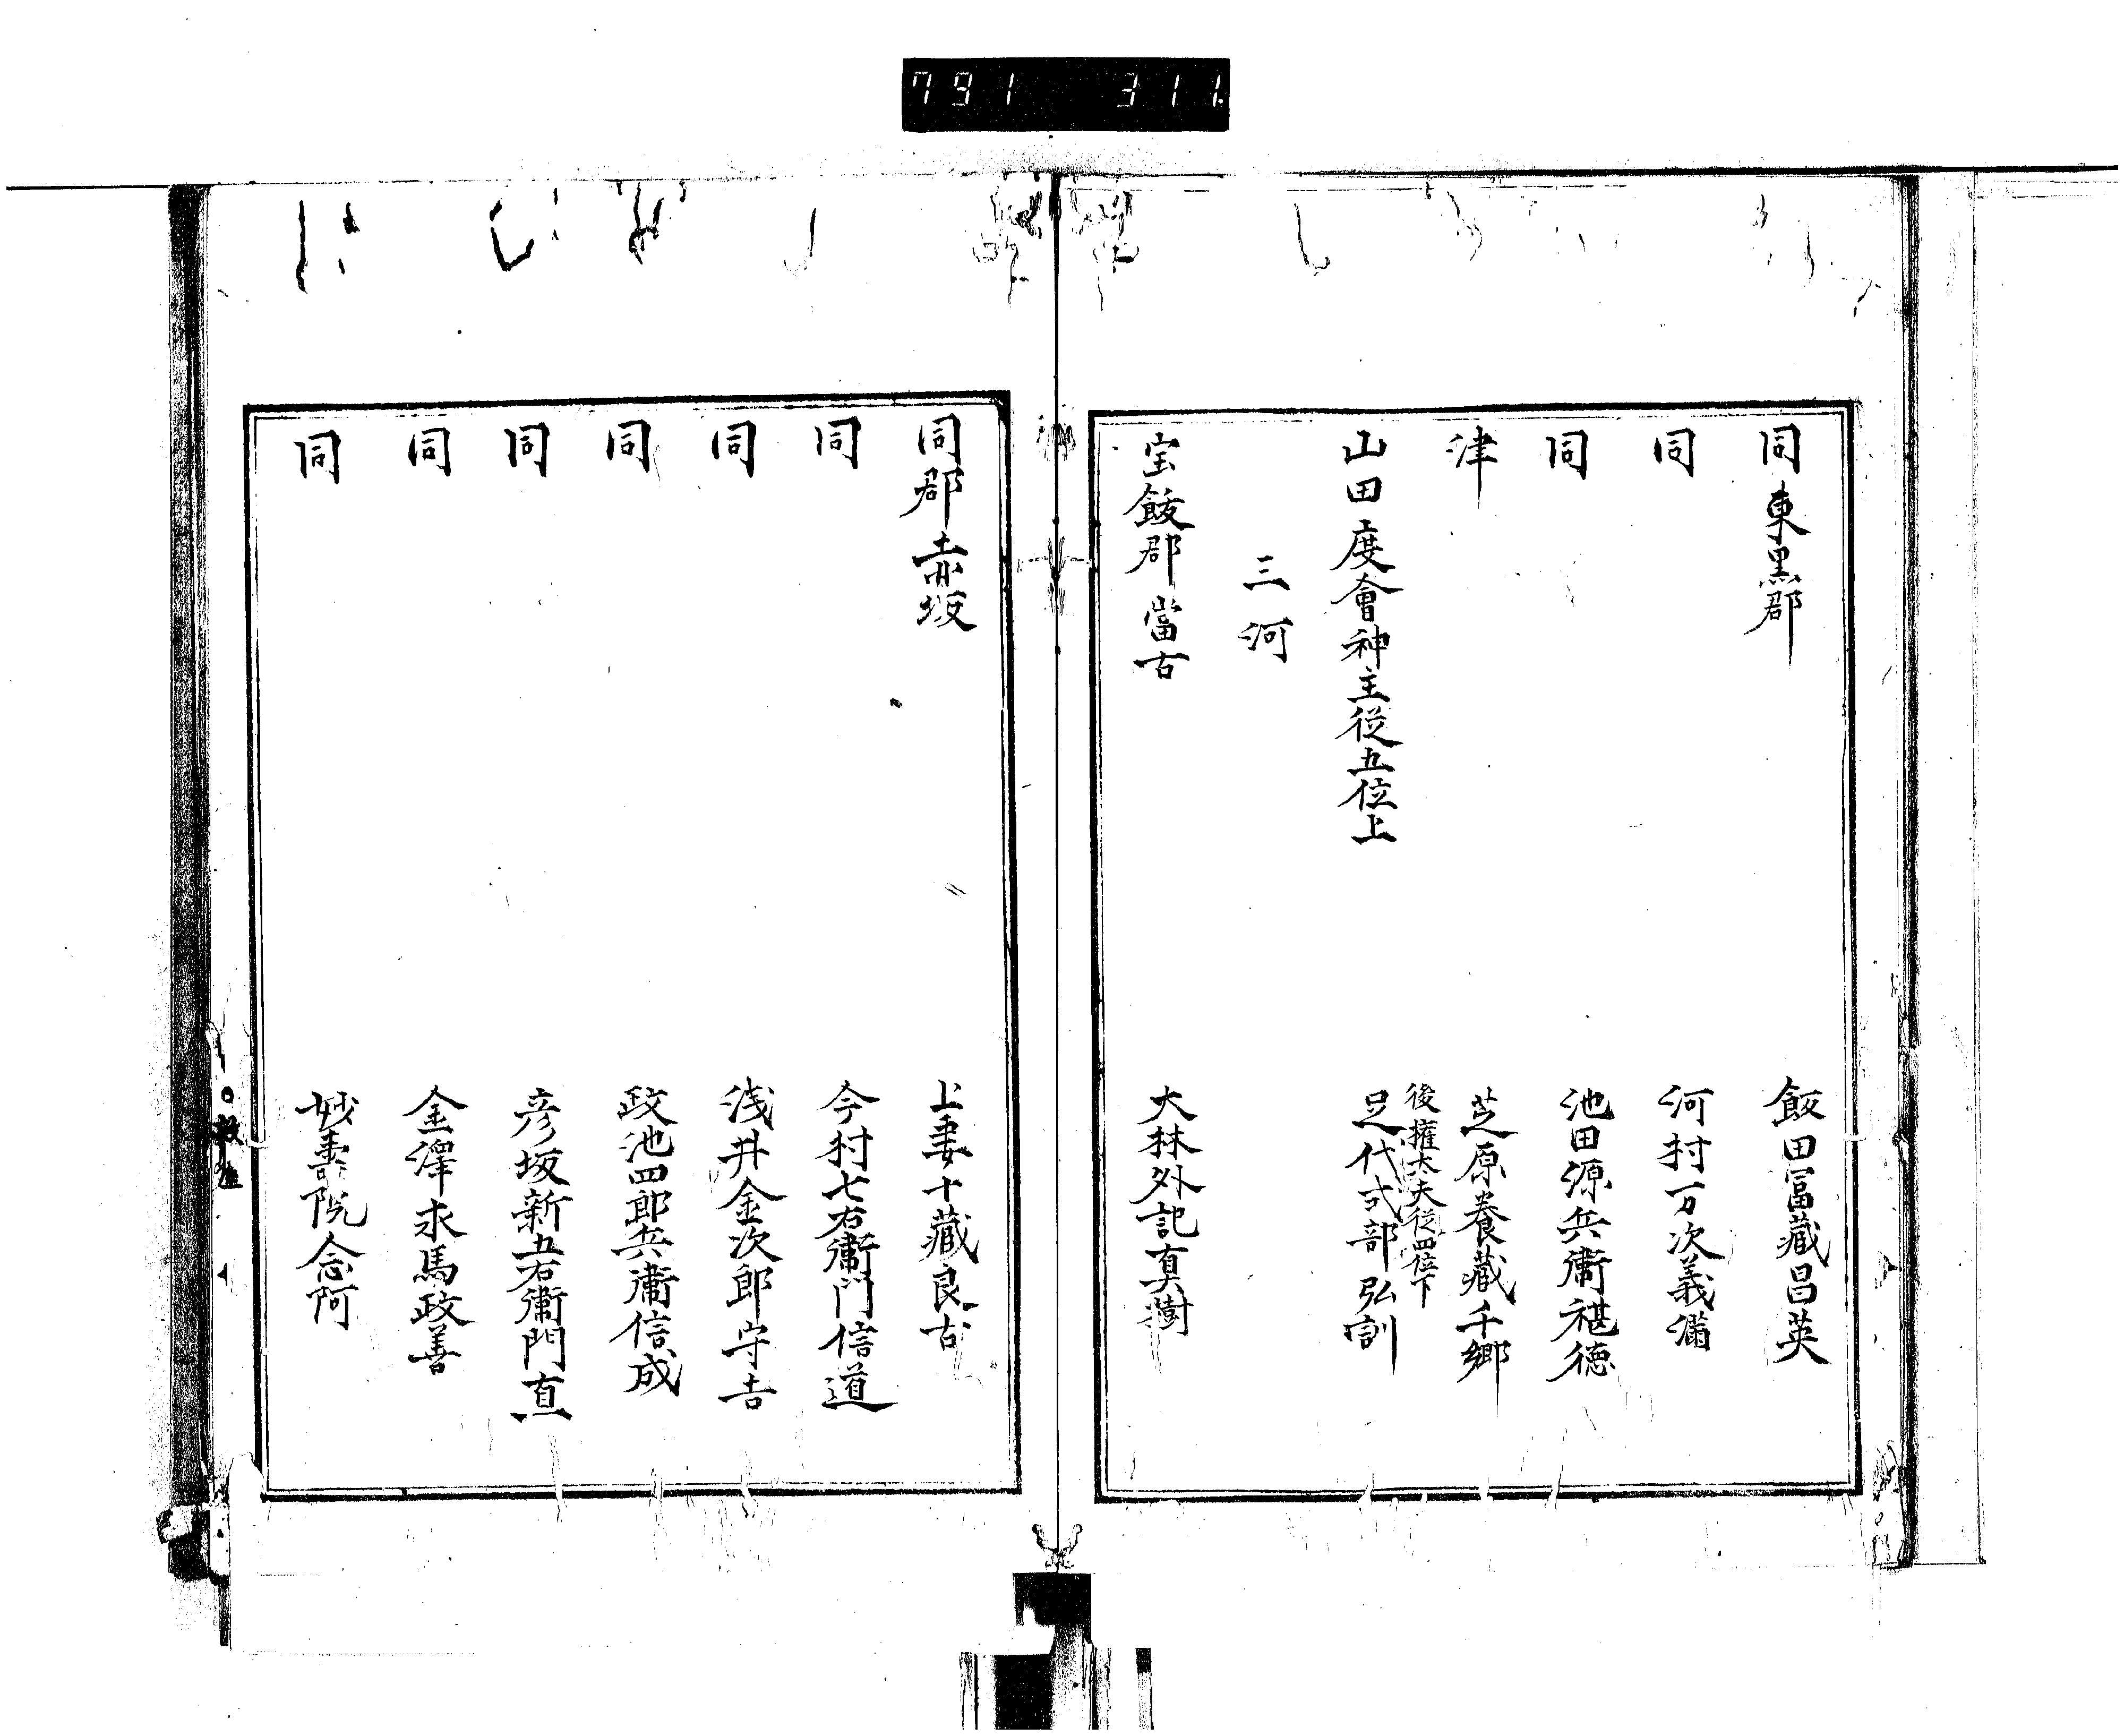 791 311.
同東黒郡 飯田冨藏昌英
同 河村万次義滿
同 池田源兵衛禔德
津 芝原養藏千郷
後權大夫従四位下
山田度會神主從五位上 足代式部弘訓
三河
宝飯郡當古 大林外記真樹
同郡赤坂 上妻十藏良古
同 今村七右衛門信道
同 浅井金次郎守吉
同 政池四郎兵衛信成
同 彦坂新五右衛門直
同 金澤求馬政善
同 妙壽院念阿